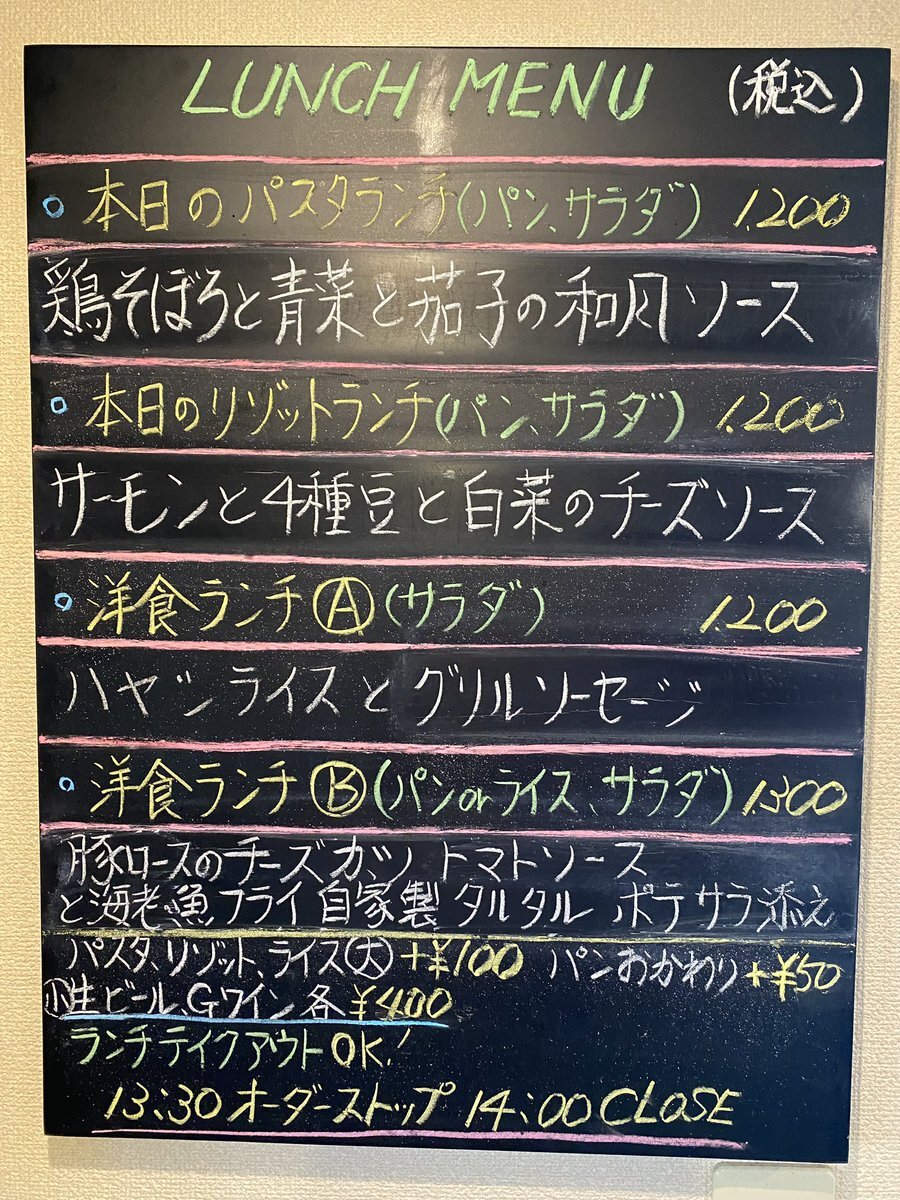 LUNCH MENU (税込)
本日のパスタランチ(パン、サラダ) 1.200
鶏そぼろと青菜と茄子の和風ソース
本日のリゾットランチ(パン、サラダ) 1.200
サーモンと4種豆と白菜のチーズソース
洋食ランチⒶ(サラダ) 1.200
ハヤシライスとグリルソーセージ
洋食ランチⒷ(パンorライス、サラダ) 1.300
豚ロースのチーズカツ トマトソース
と海老、魚フライ自家製タルタル ポテサラ添え
パスタ、リゾット、ライス(大)+¥100 パンおかわり+¥50
(小)生ビール、Gワイン各¥400
ランチテイクアウトOK!
13:30オーダーストップ 14:00CLOSE